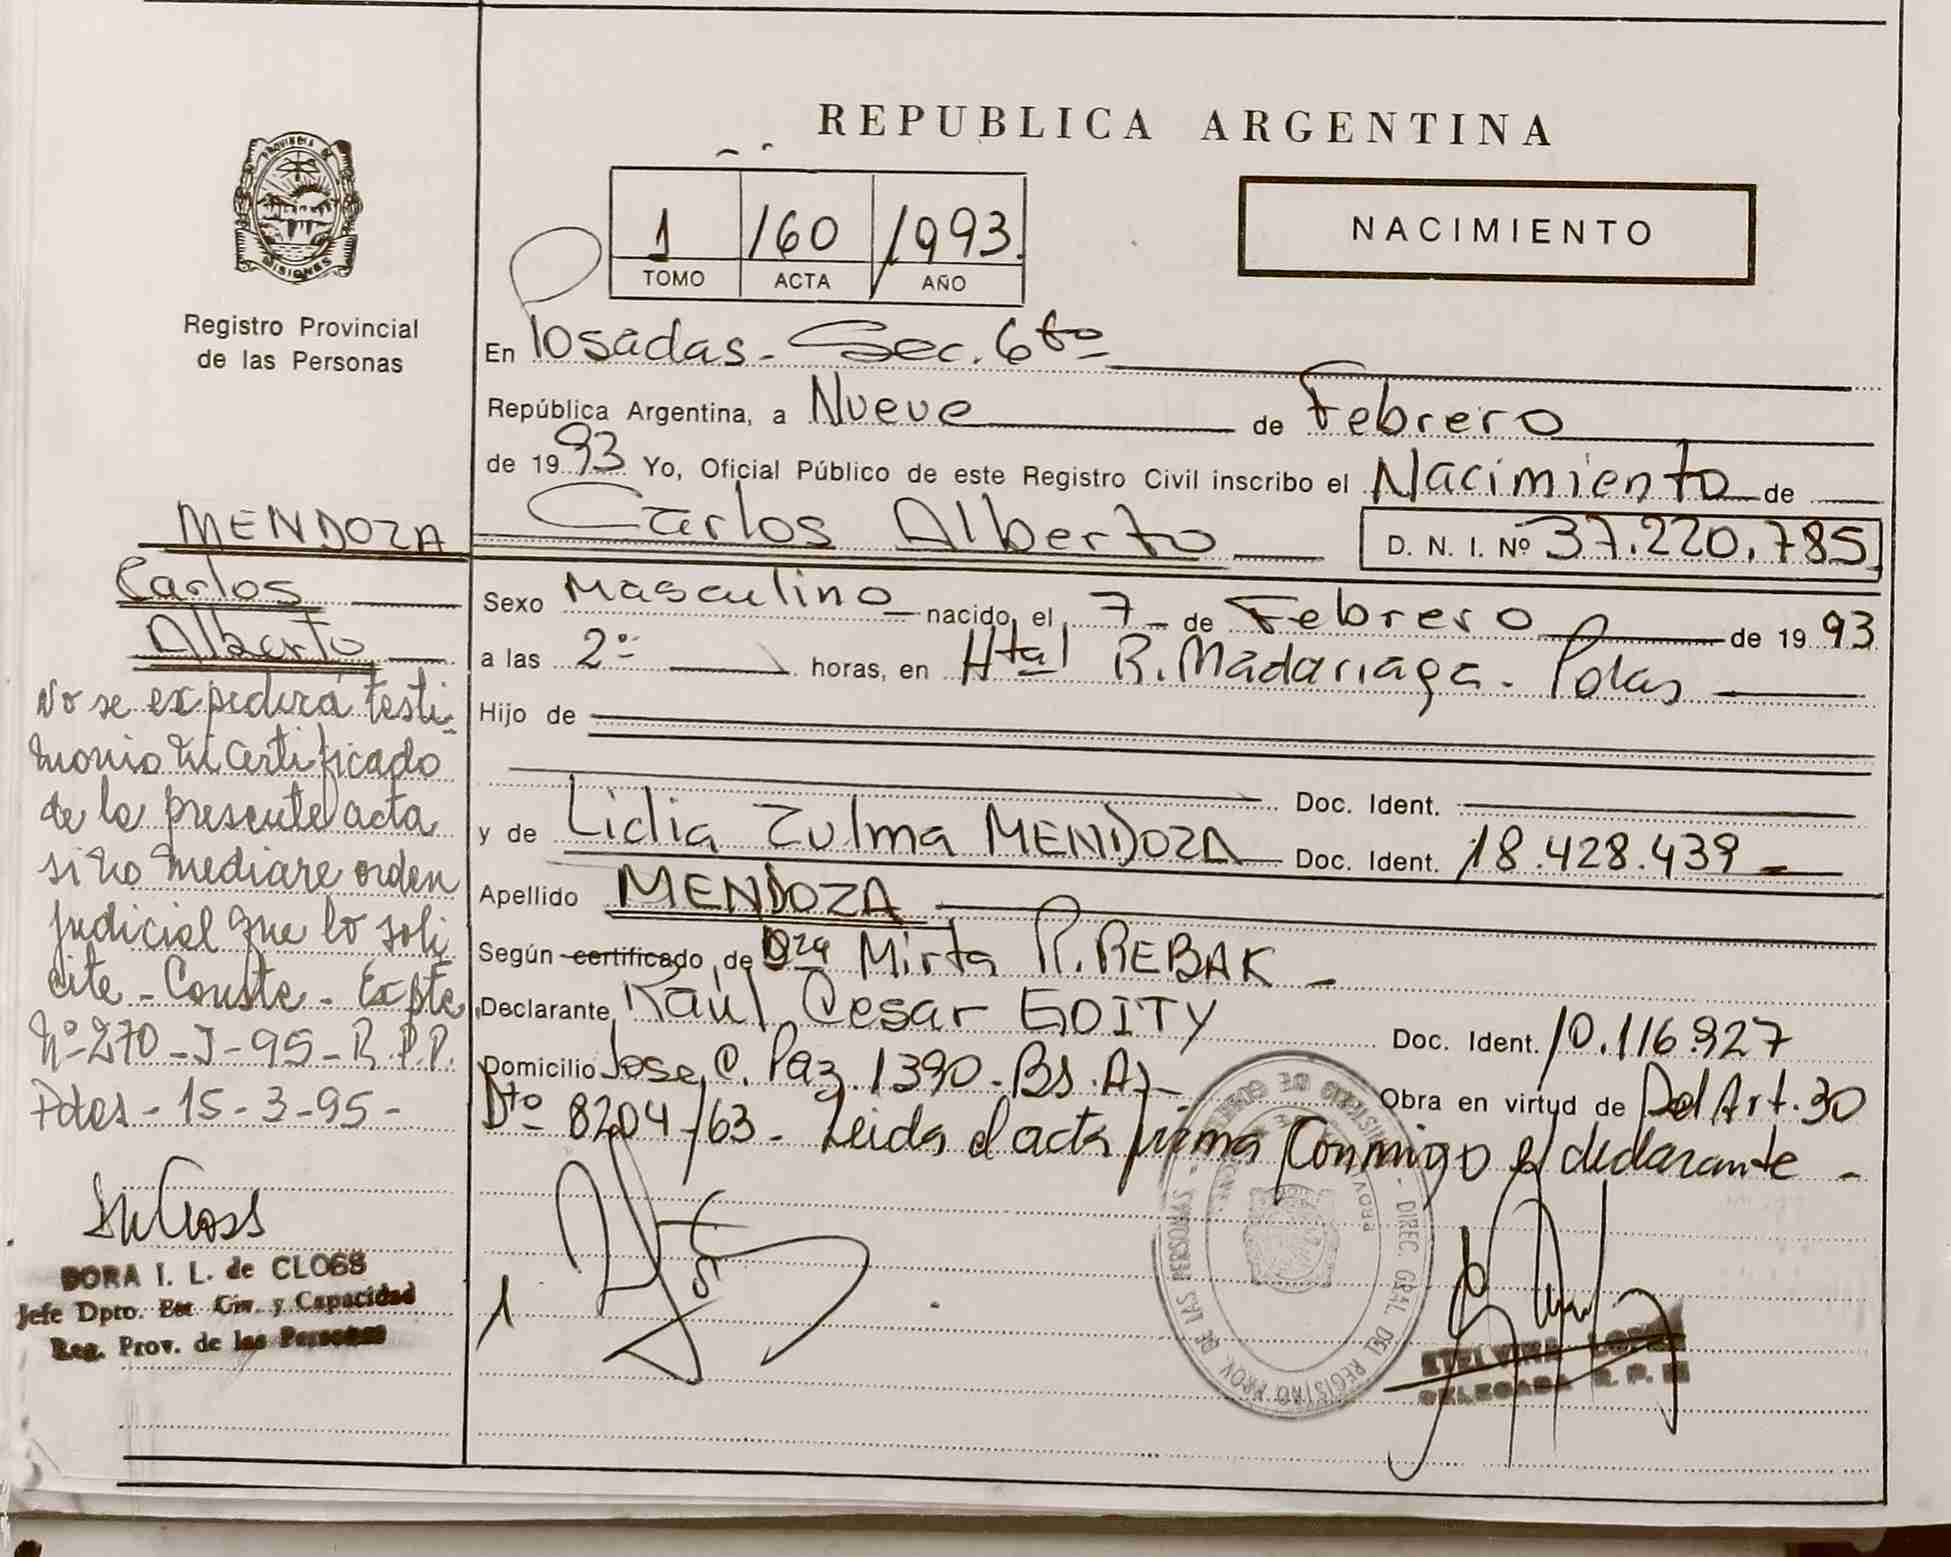 REPUBLICA ARGENTINA
PROVINCIA DE MISIONES
Registro Provincial
de las Personas
1 160 1993
TOMO ACTA AÑO
NACIMIENTO
En Posadas - Sec. 6ta
República Argentina, a Nueve de Febrero
de 1993 Yo, Oficial Público de este Registro Civil inscribo el Nacimiento de
Carlos Alberto D. N. I. Nº 37.220.785
Sexo Masculino nacido, el 7 - de Febrero de 1993
a las 2º horas, en Htal R. Madariaga - Pdas
Hijo de
Doc. Ident.
y de Lidia Zulma MENDOZA Doc. Ident. 18.428.439
Apellido MENDOZA
Según certificado, de Dra Mirta R. REBAK -
Declarante, Raúl Cesar GOITY Doc. Ident. 10.116.927
Domicilio Jose C. Paz 1390 - Bs. As - Obra en virtud de Del Art. 30
Dto 8204/63 - Leida el acta firma conmigo el declarante -
MENDOZA
Carlos
Alberto
No se expedirá testi-
monio ni certificado
de la presente acta
si no mediare orden
judicial que lo soli
cite - Conste - Expte
Nº 270 - J - 95 - R.P.P.
Pdas - 15 - 3 - 95 -
DORA I. L. de CLOSS
Jefe Dpto. Est. Civ. y Capacidad
Reg. Prov. de las Personas
DIREC. GRAL DEL REGISTRO PROV. DE LAS PERSONAS
ETELVINA LOPEZ
DELEGADA R. P.